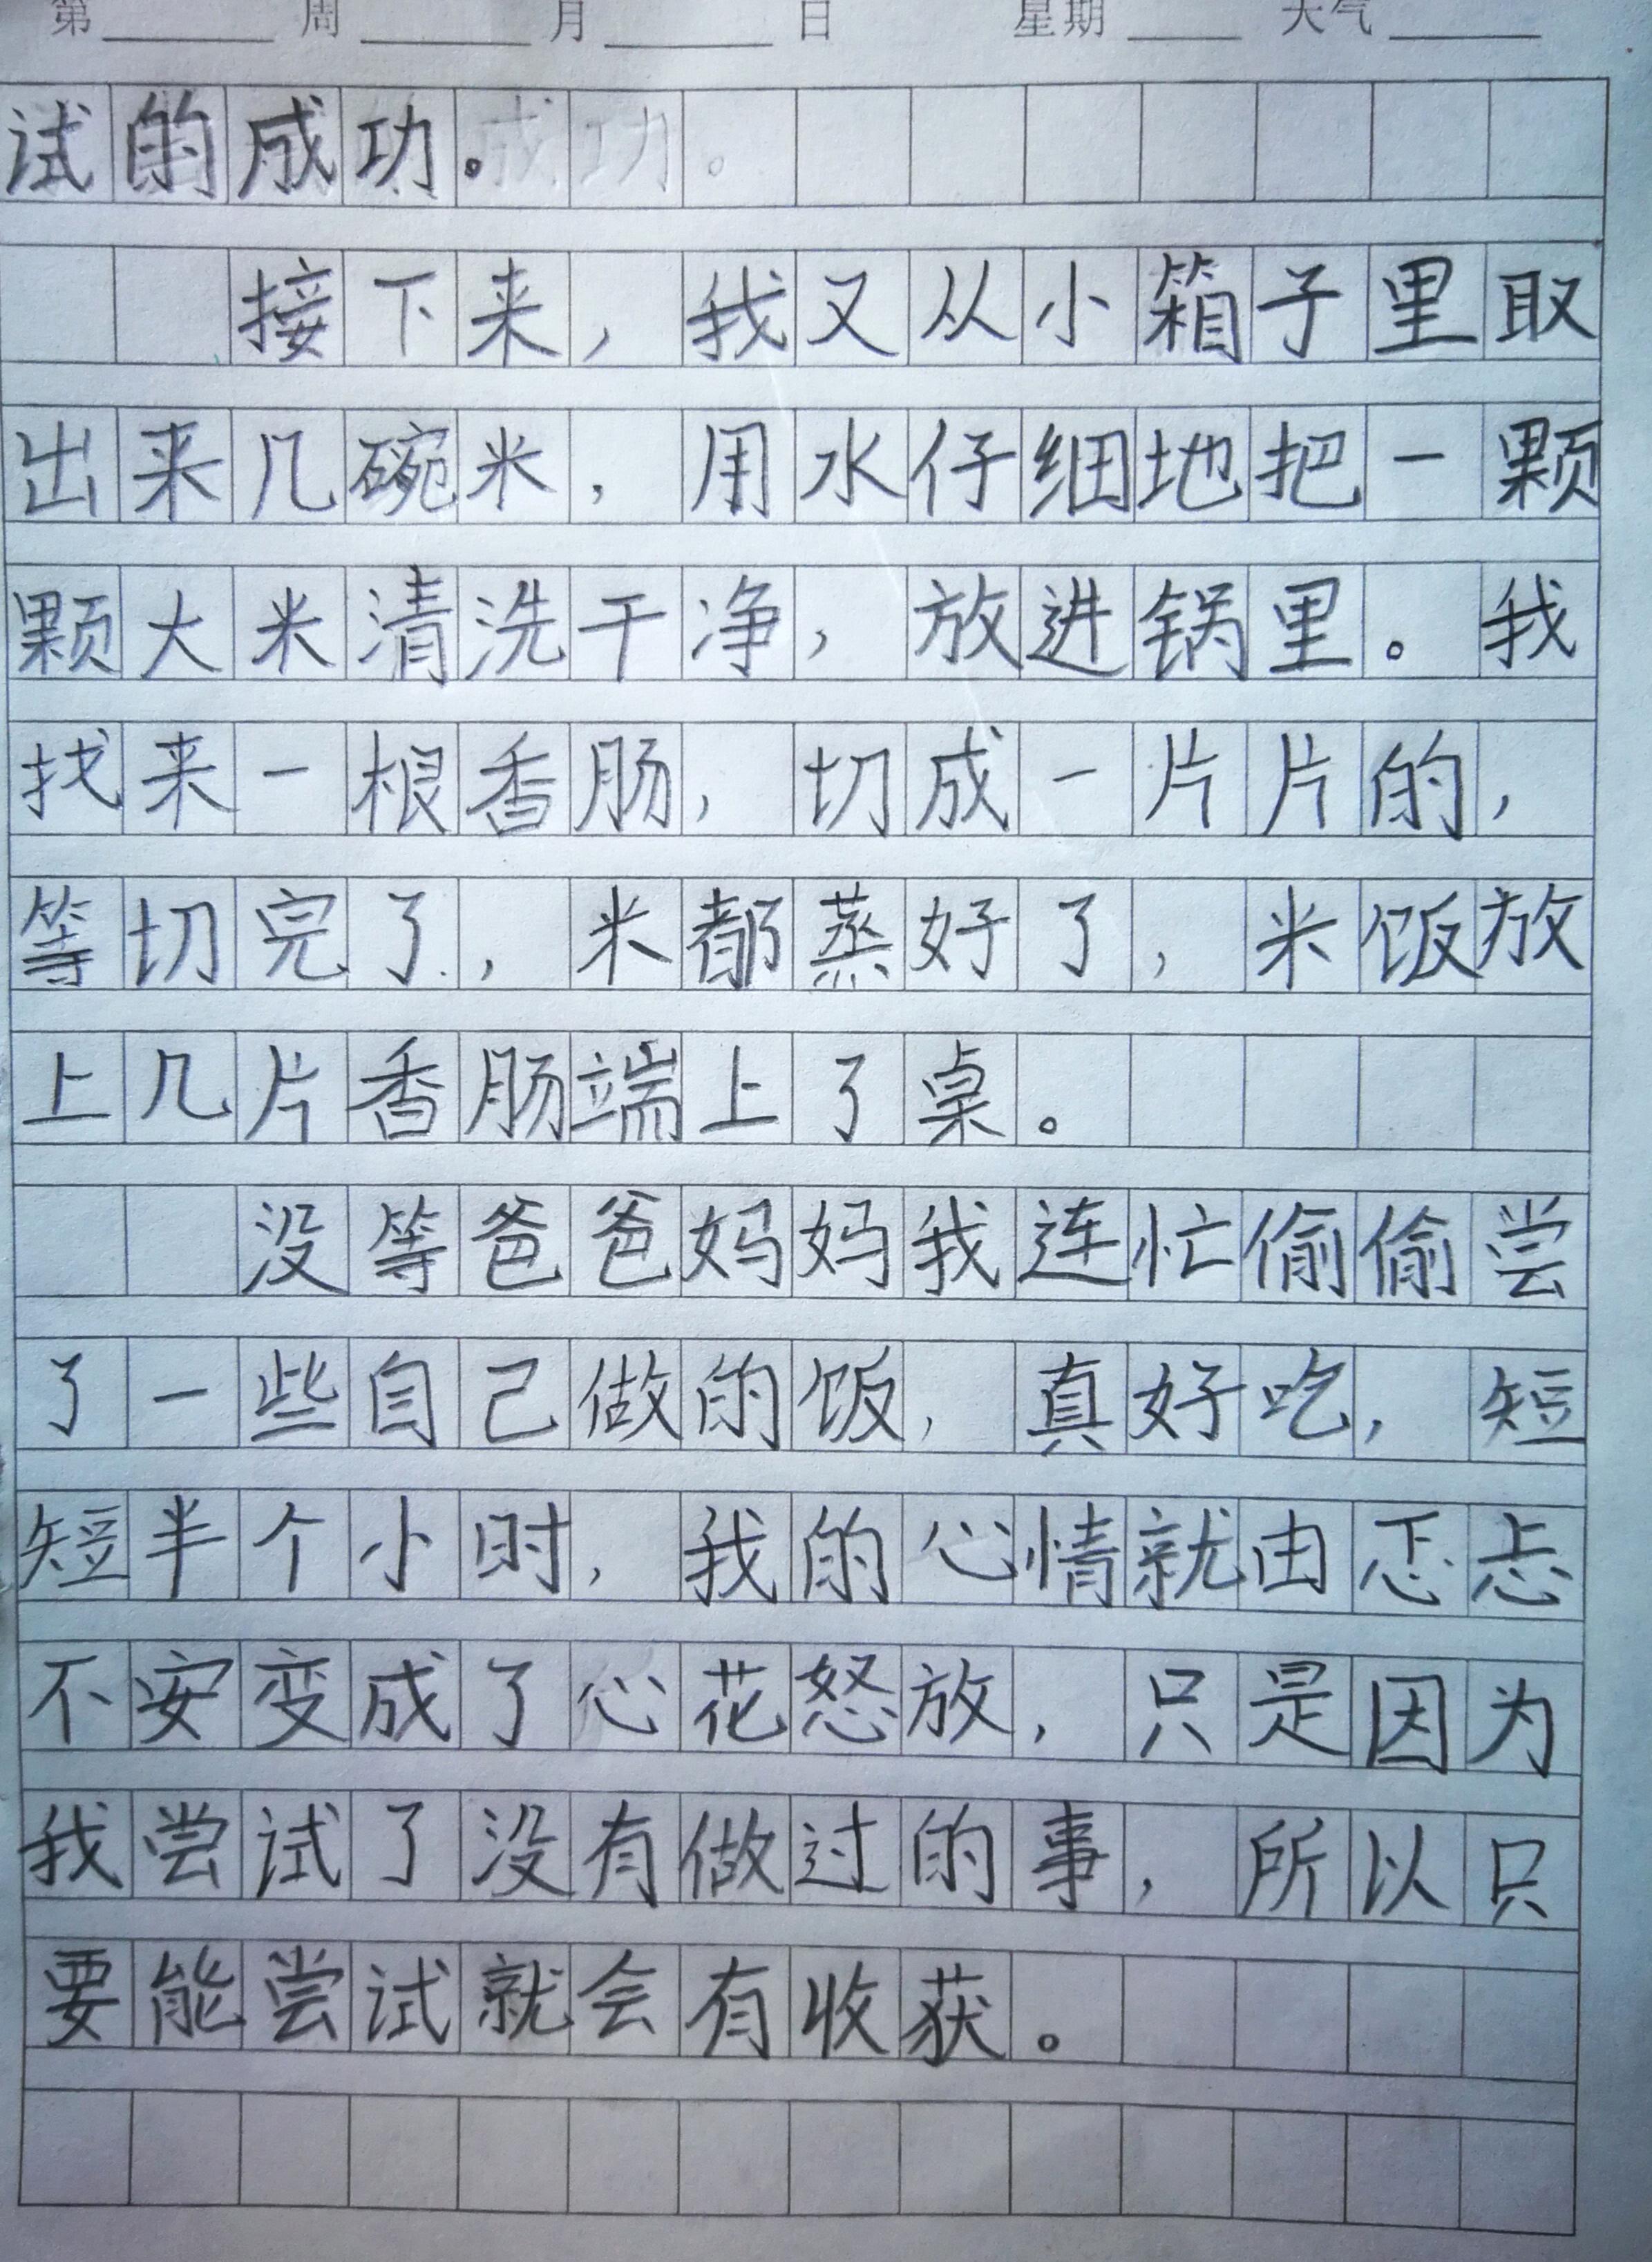 第 周 月 日 星期 天气
试的成功。
接下来，我又从小箱子里取
出来几碗米，用水仔细地把一颗
颗大米清洗干净，放进锅里。我
找来一根香肠，切成一片片的，
等切完了，米都蒸好了，米饭放
上几片香肠端上了桌。
没等爸爸妈妈我连忙偷偷尝
了一些自己做的饭，真好吃，短
短半个小时，我的心情就由忐忑
不安变成了心花怒放，只是因为
我尝试了没有做过的事，所以只
要能尝试就会有收获。